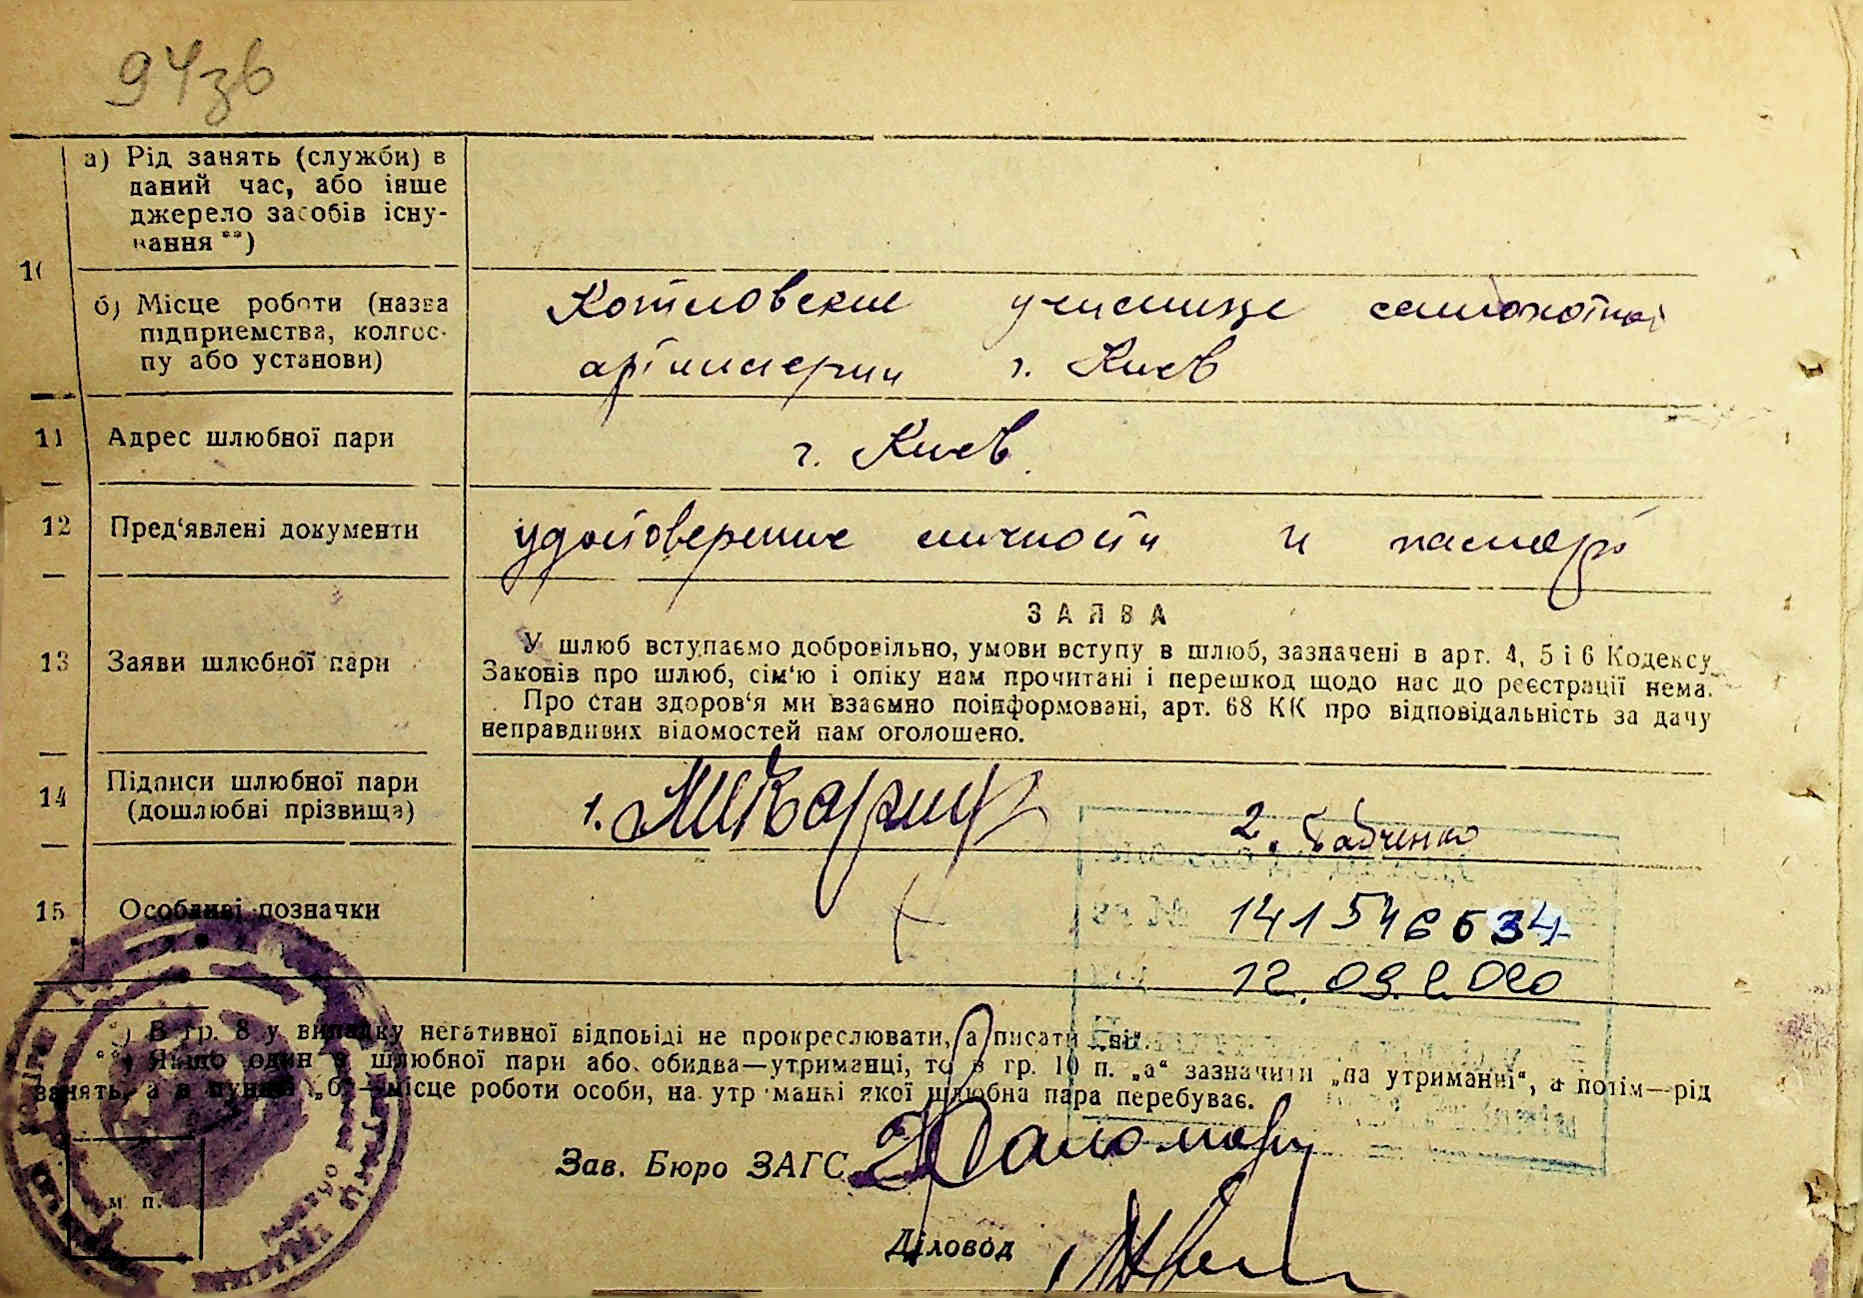 94зв
а) Рід занять (служби) в
даний час, або інше
джерело засобів існу-
вання **)
10
б) Місце роботи (назва
підприємства, колгос-
пу або установи)
училище самоходной
артиллерии г. Киев
11 Адрес шлюбної пари
г. Киев.
12 Пред‘явлені документи
удостоверение личности и паспорт
13 Заяви шлюбної пари
ЗАЯВА
У шлюб вступаємо добровільно, умови вступу в шлюб, зазначені в арт. 4, 5 і 6 Кодексу
Законів про шлюб, сім‘ю і опіку нам прочитані і перешкод щодо нас до реєстрації нема.
Про стан здоров‘я ми взаємно поінформовані, арт. 68 КК про відповідальність за дачу
неправдивих відомостей нам оголошено.
14 Підписи шлюбної пари
(дошлюбні прізвища)
1.
2.
15 Особливі позначки
12.09.2020
*) В гр. 8 у випадку негативної відповіді не прокреслювати, а писати „ні“.
**) Якщо один з шлюбної пари або обидва—утриманці, то в гр. 10 п. „а“ зазначити „на утриманні“, а потім—рід
занять, а в пункті „б“—місце роботи особи, на утриманні якої шлюбна пара перебуває.
Зав. Бюро ЗАГС
м. п.
Діловод